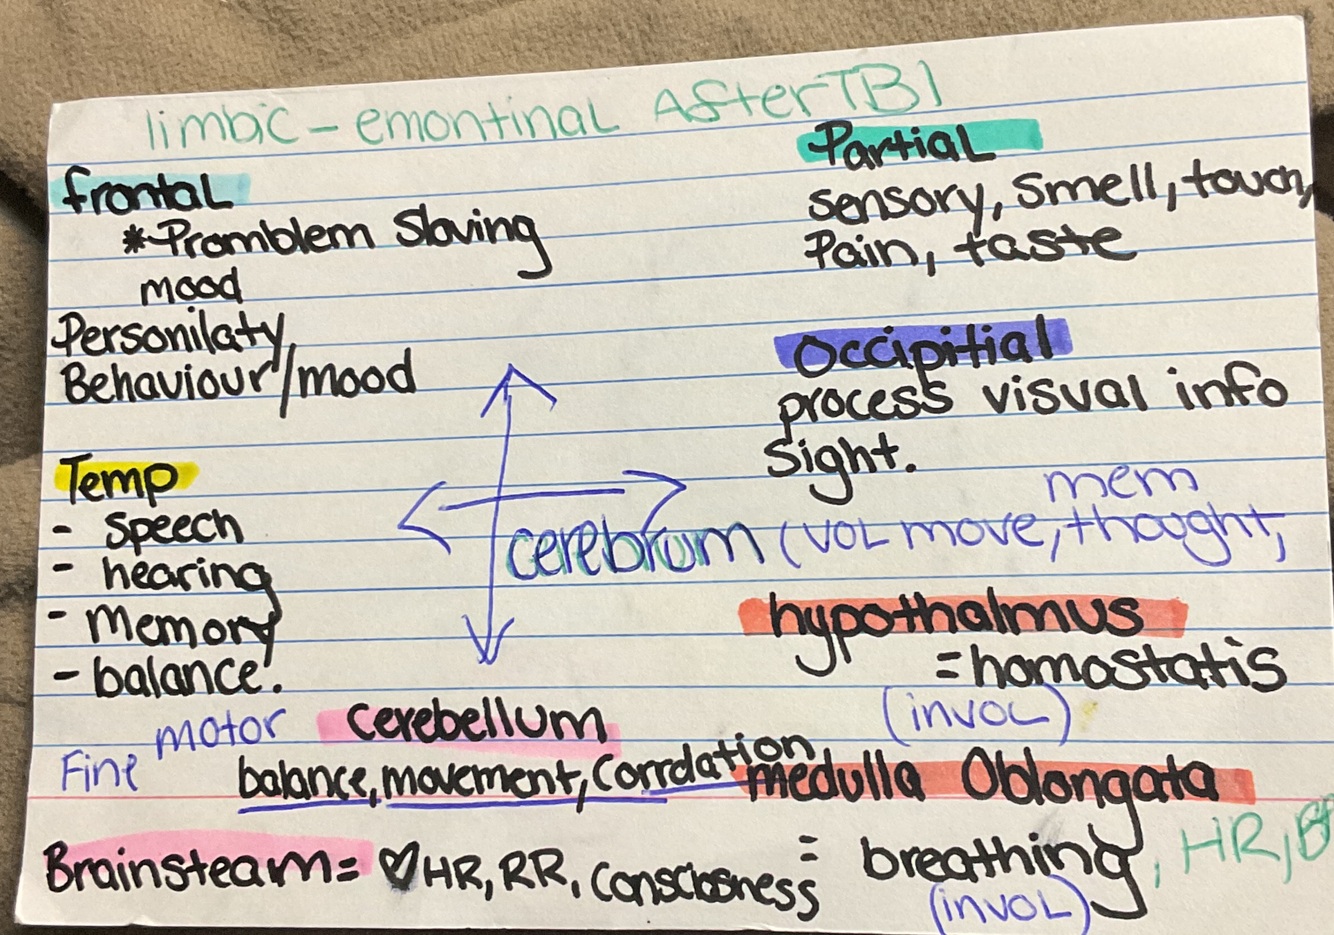 limbic - emontinal After TBI
frontal
*Promblem Sloving
mood
Personilaty,
Behaviour/mood
Partial
sensory, smell, touch,
Pain, taste
Occipitial
process visual info
Sight.
Temp
- speech
- hearing
- memory
- balance.
mem
cerebrum (VOL move, thought,
hypothalmus
= homostatis
(invol)
Fine motor cerebellum
balance, movement, Corrdation
medulla Oblongata
= breathing, HR, BP
(invol)
Brainsteam = ♡HR, RR, Consciosness